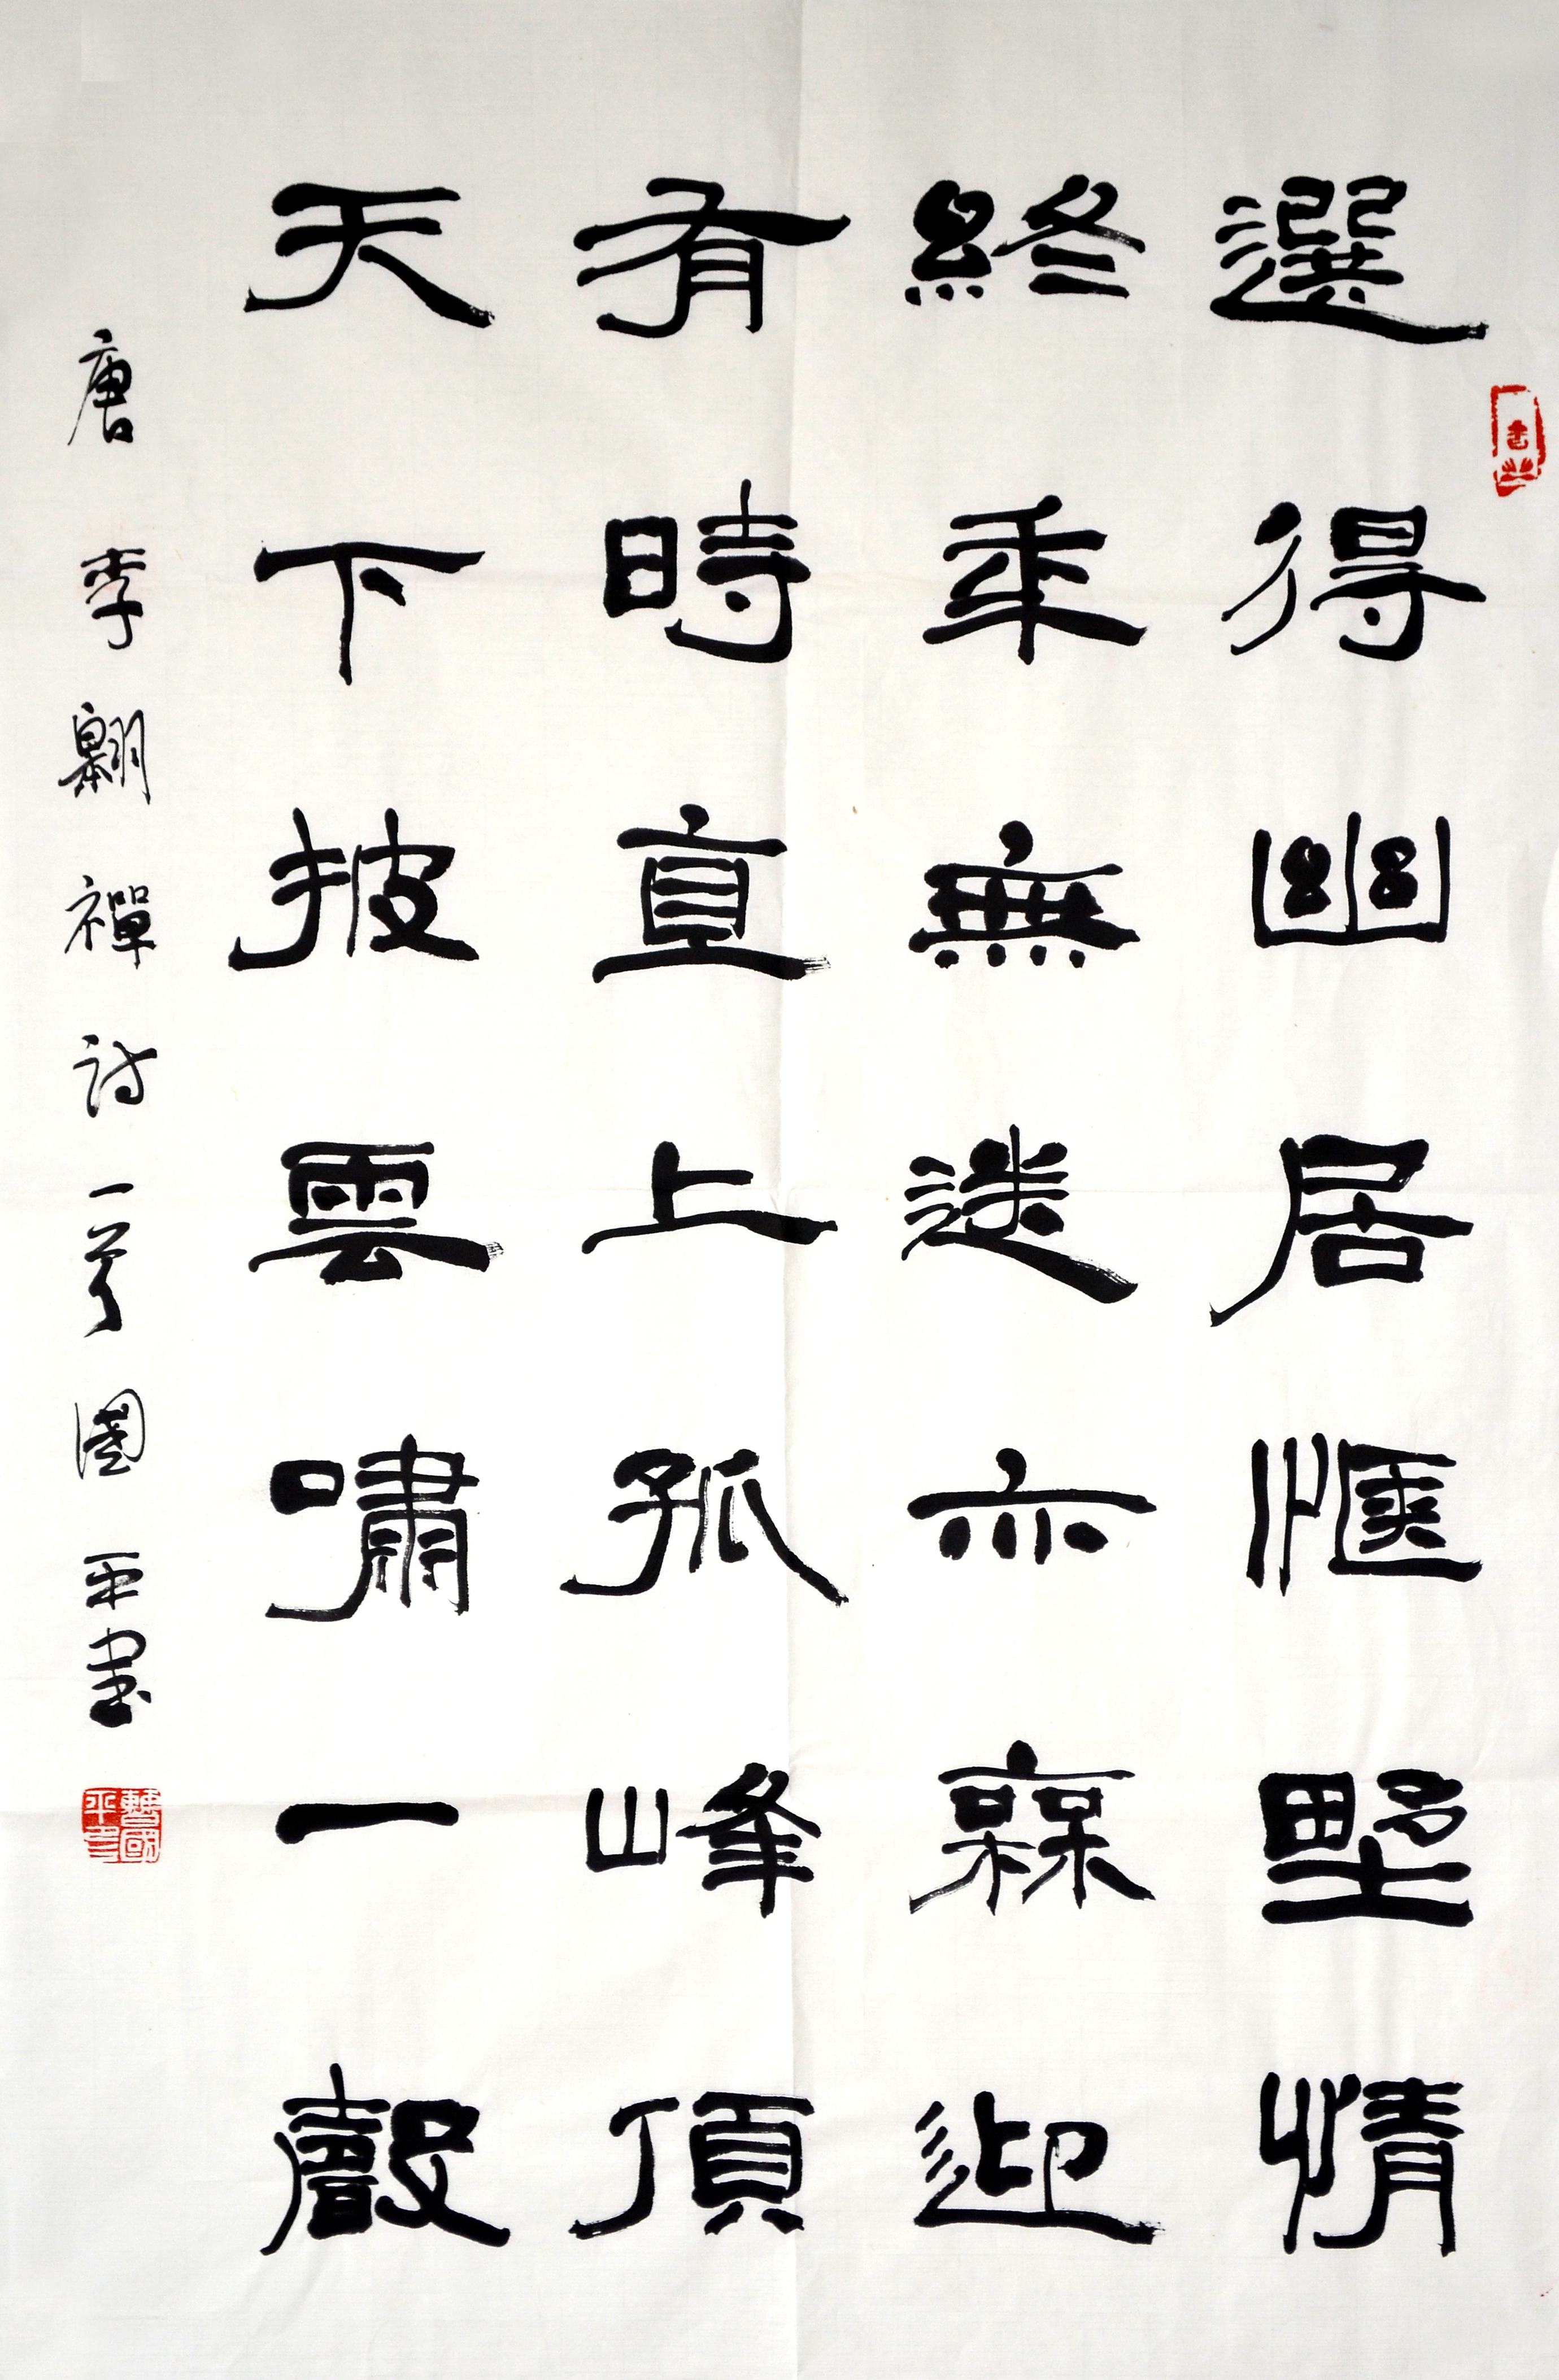 選得幽居愜野情
終年無送亦橆迎
有時直上孤峰頂
天下披雲嘯一聲
唐李翱禪詩一首國平書
曹國平印